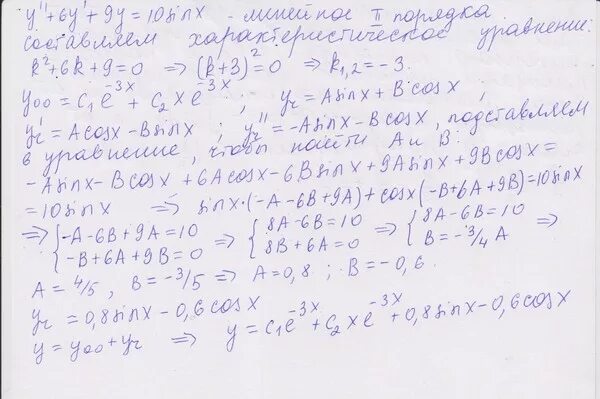 y''+6y'+9y=10sinx - линейное II порядка
составляем характеристическое уравнение:
k²+6k+9=0 ⇒ (k+3)²=0 ⇒ k₁,₂=-3.
yоо = C₁e^-3x + C₂xe^-3x ; yг = Asinx + Bcosx ,
yг' = Acosx - Bsinx ; yг'' = -Asinx - Bcosx , подставляем
в уравнение, чтобы найти A и B:
-Asinx - Bcosx + 6Acosx - 6Bsinx + 9Asinx + 9Bcosx =
= 10sinx ⇒ sinx·(-A-6B+9A)+cosx(-B+6A+9B)=10sinx
⇒ {-A-6B+9A=10 ⇒ {8A-6B=10 ⇒ {8A-6B=10 ⇒
{-B+6A+9B=0 {8B+6A=0 {B=-3/4 A
A=4/5 , B=-3/5 ⇒ A=0,8 ; B=-0,6.
yг = 0,8sinx - 0,6cosx
y = yоо + yг ⇒ y = C₁e^-3x + C₂xe^-3x + 0,8sinx - 0,6cosx